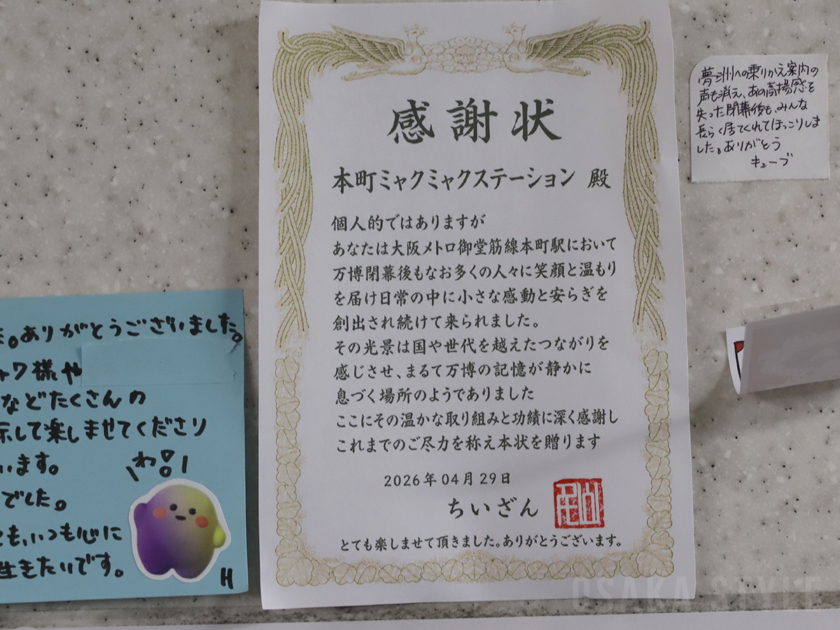 感謝状
本町ミャクミャクステーション 殿
個人的ではありますが
あなたは大阪メトロ御堂筋線本町駅において
万博閉幕後もなお多くの人々に笑顔と温もり
を届け日常の中に小さな感動と安らぎを
創出され続けて来られました。
その光景は国や世代を越えたつながりを
感じさせ、まるで万博の記憶が静かに
息づく場所のようでありました
ここにその温かな取り組みと功績に深く感謝し
これまでのご尽力を称え本状を贈ります
2026年04月29日
ちいざん
とても楽しませて頂きました。ありがとうございます。
夢洲への乗りかえ案内の
声も消え、あの高揚感を
失った閉幕後も、みんな
長らく居てくれてほっこりしま
した。ありがとう
キューブ
。ありがとうございました。
ャク様や
などたくさんの
示して楽しませてくださり
います。
でした。
わ!!
ても、いつも心に
生きたいです。
H
OSAKA STYLE